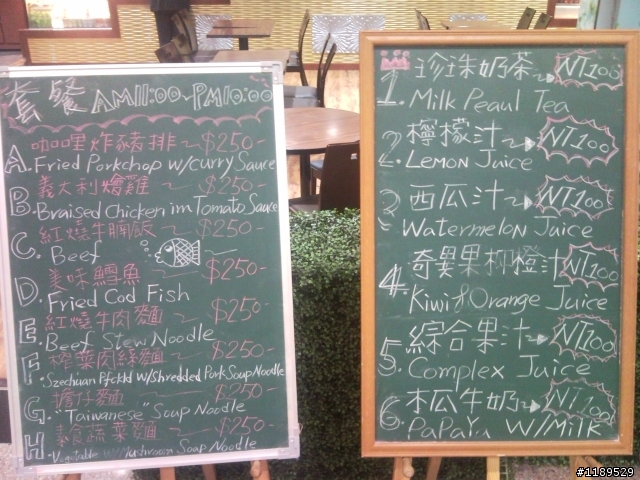 套餐 AM11:00~PM10:00
咖哩炸豬排~$250-
A. Fried Porkchop w/curry Sauce
義大利燴雞~$250-
B. Braised Chicken im Tomato Sauce
紅燒牛腩飯~$250-
C. Beef
美味鱈魚~$250-
D. Fried Cod Fish
紅燒牛肉麵~$250-
E. Beef Stew Noodle
榨菜肉絲麵~$250-
F. Szechuan Pickld W/Shredded Pork Soup Noodle
擔仔麵~$250-
G. "Taiwanese" Soup Noodle
素食蔬菜麵~$250-
H. Vegetable w/Mushroom Soup Noodle
1. 珍珠奶茶 NT100
Milk Peaul Tea
2. 檸檬汁 NT100
Lemon Juice
3. 西瓜汁 NT100
Watermelon Juice
4. 奇異果柳橙汁 NT100
Kiwi & Orange Juice
5. 綜合果汁 NT100
Complex Juice
6. 木瓜牛奶 NT100
PaPaYa W/Milk
#1189529